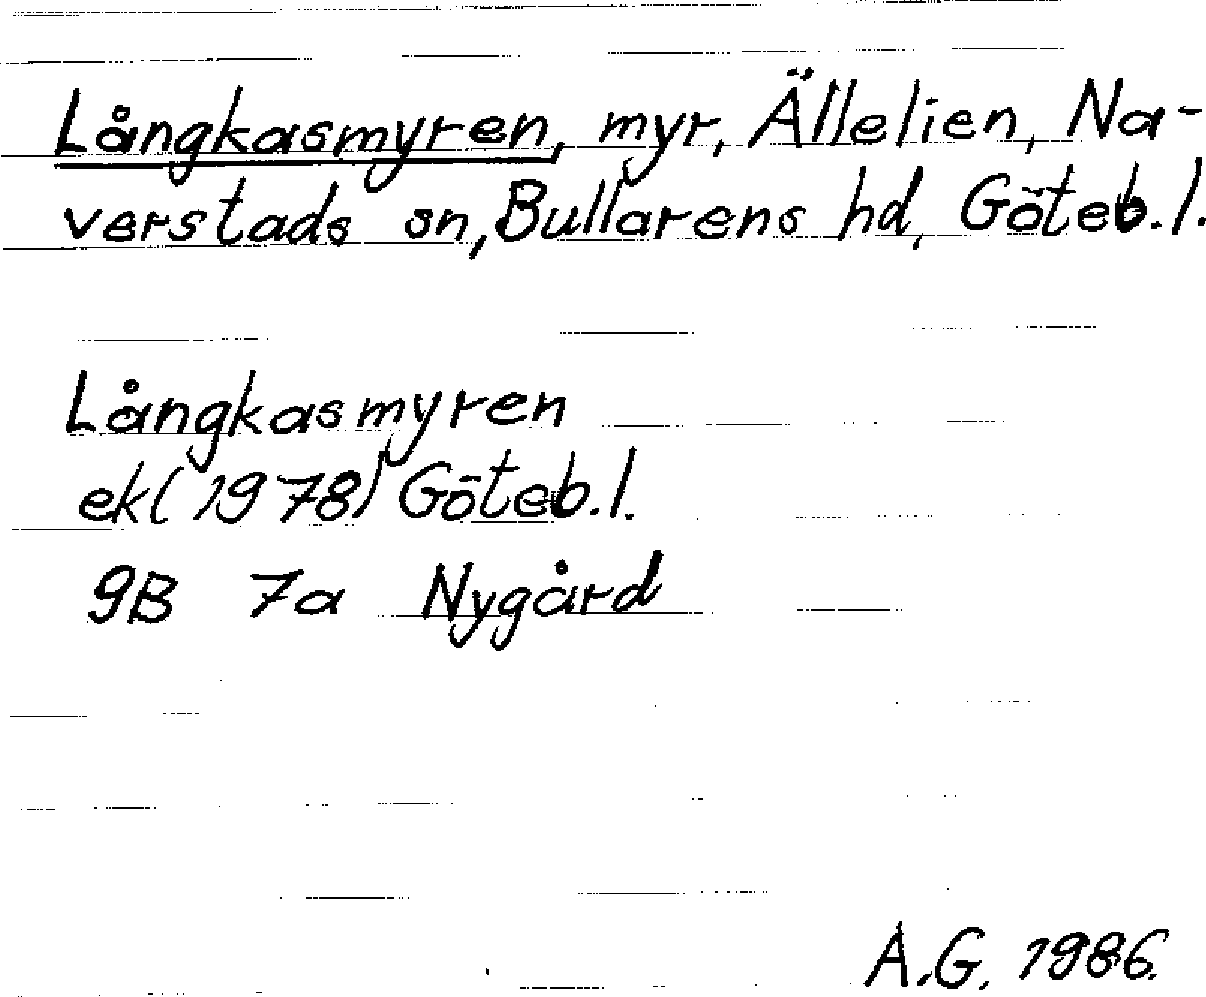 Långkasmyren, myr, Ällelien, Na-
verstads sn, Bullarens hd, Göteb.l.
Långkasmyren
ek(1978) Göteb.l.
9B 7a Nygård
A.G. 1986.